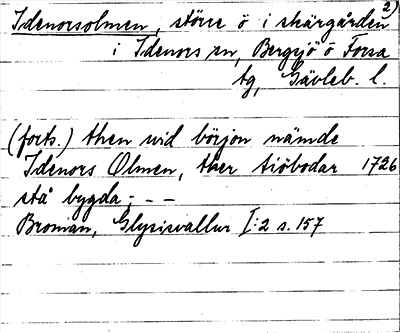 2)
Idenorsolmen, större ö i skärgården
i Idenors sn, Bergsjö o Forsa
tg, Gävleb. l.
(forts.) then wid börjon nämde
Idenors Olmen, ther siöbodar 1726
stå bygda; - -
Broman, Glysisvallur I:2 s. 157